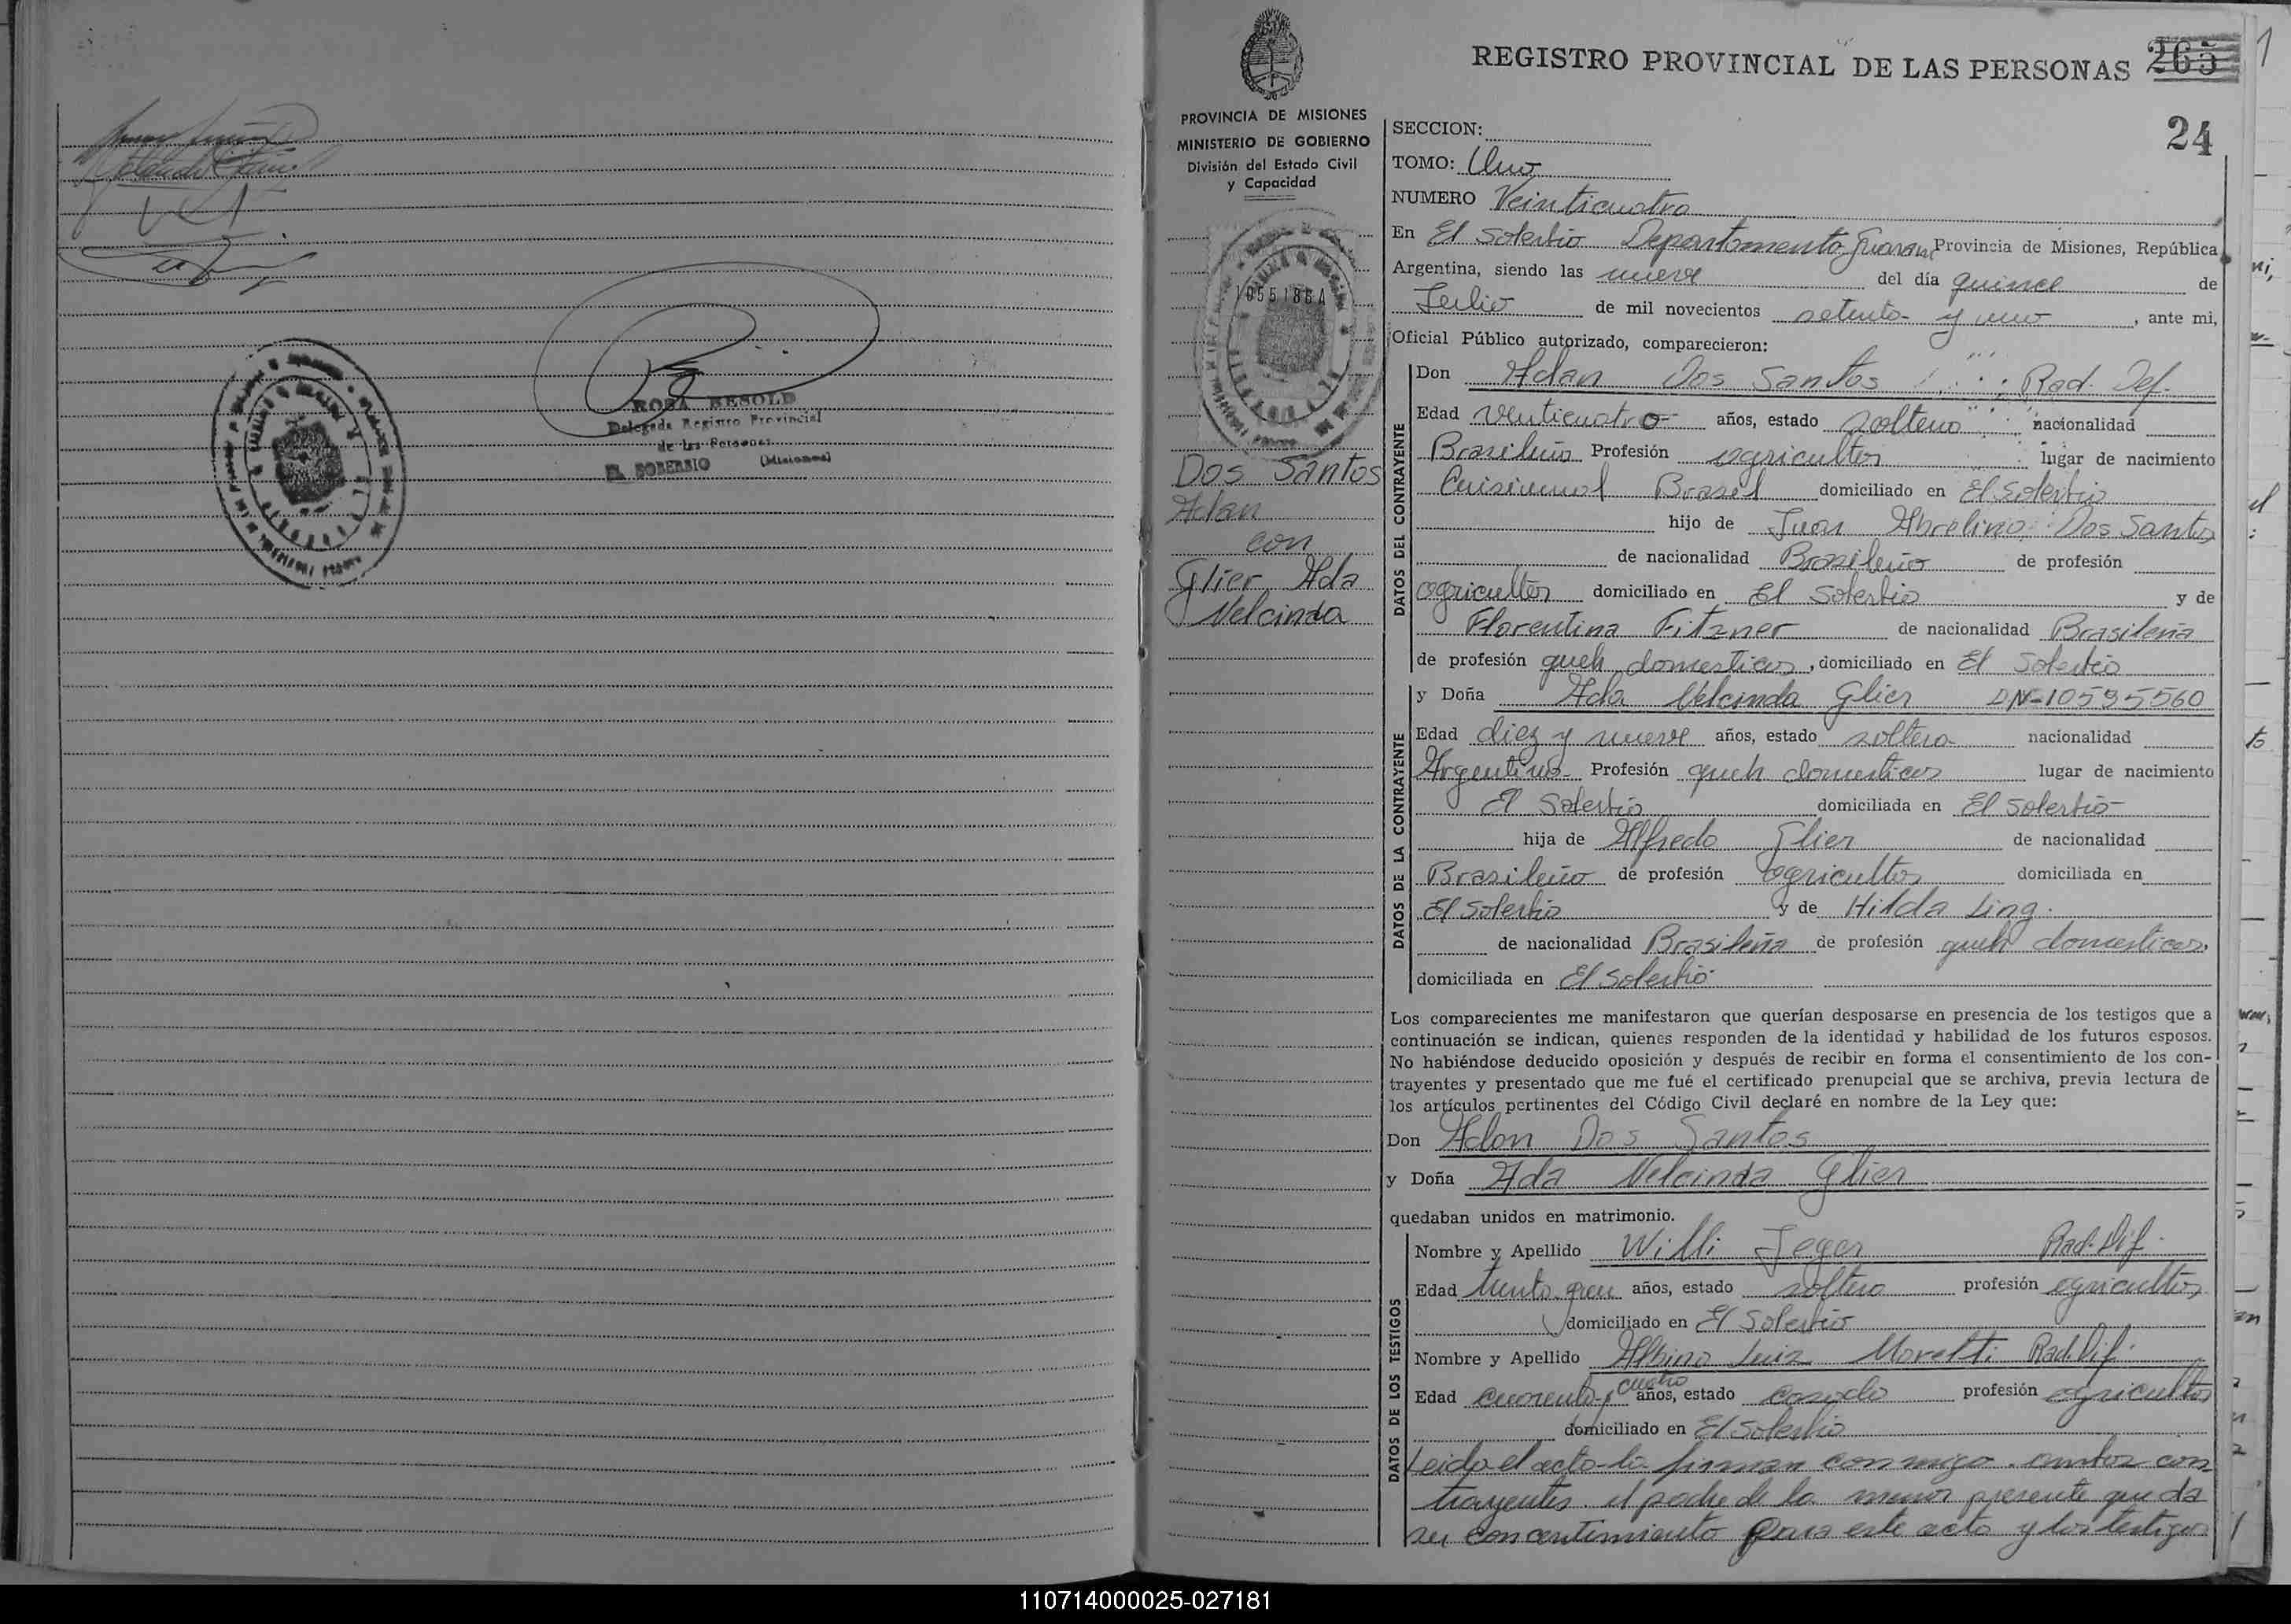 ROSA BESOLD
Delegada Registro Provincial
de las Personas
EL SOBERBIO (Misiones)
REGISTRO PROVINCIAL DE LAS PERSONAS 265
24
PROVINCIA DE MISIONES
MINISTERIO DE GOBIERNO
División del Estado Civil
y Capacidad
1055186A
Dos Santos
Adan
con
Glier Ada
Nelcinda
SECCION:
TOMO: Uno
NUMERO Veinticuatro
En El Soberbio Departamento Guarani Provincia de Misiones, República
Argentina, siendo las nueve del día quince de
Julio de mil novecientos setenta y uno, ante mi,
Oficial Público autorizado, comparecieron:
DATOS DEL CONTRAYENTE
Don Adan Dos Santos Rad. Def.
Edad venticuatro años, estado soltero nacionalidad
Brasileño Profesión agricultor lugar de nacimiento
Brasil domiciliado en El Soberbio
hijo de Juan Abrelino Dos Santos
de nacionalidad Brasileño de profesión
agricultor domiciliado en El Soberbio y de
Florentina Fitzner de nacionalidad Brasileña
de profesión queh domesticos, domiciliado en El Soberbio
DATOS DE LA CONTRAYENTE
y Doña Ada Nelcinda Glier DN-10595560
Edad diez y nueve años, estado soltera nacionalidad
Argentina Profesión queh domesticos lugar de nacimiento
El Soberbio domiciliada en El Soberbio
hija de Alfredo Glier de nacionalidad
Brasileño de profesión agricultor domiciliada en
El Soberbio y de Hilda Ling.
de nacionalidad Brasileña de profesión queh domesticos,
domiciliada en El Soberbio
Los comparecientes me manifestaron que querían desposarse en presencia de los testigos que a
continuación se indican, quienes responden de la identidad y habilidad de los futuros esposos.
No habiéndose deducido oposición y después de recibir en forma el consentimiento de los con-
trayentes y presentado que me fué el certificado prenupcial que se archiva, previa lectura de
los artículos pertinentes del Código Civil declaré en nombre de la Ley que:
Don Adan Dos Santos
y Doña Ada Nelcinda Glier
quedaban unidos en matrimonio.
DATOS DE LOS TESTIGOS
Nombre y Apellido Willi Jeger Rad. Dif.
Edad años, estado soltero profesión agricultor
domiciliado en El Soberbio
Nombre y Apellido Albino Luiz Moretti Rad. Dif.
Edad cuarenta y cuatro años, estado casado profesión agricultor
domiciliado en El Soberbio
Leida el acto la firman conmigo ambos con-
trayentes. el padre de la menor presente que da
su concentimiento para este acto y los testigos
110714000025-027181